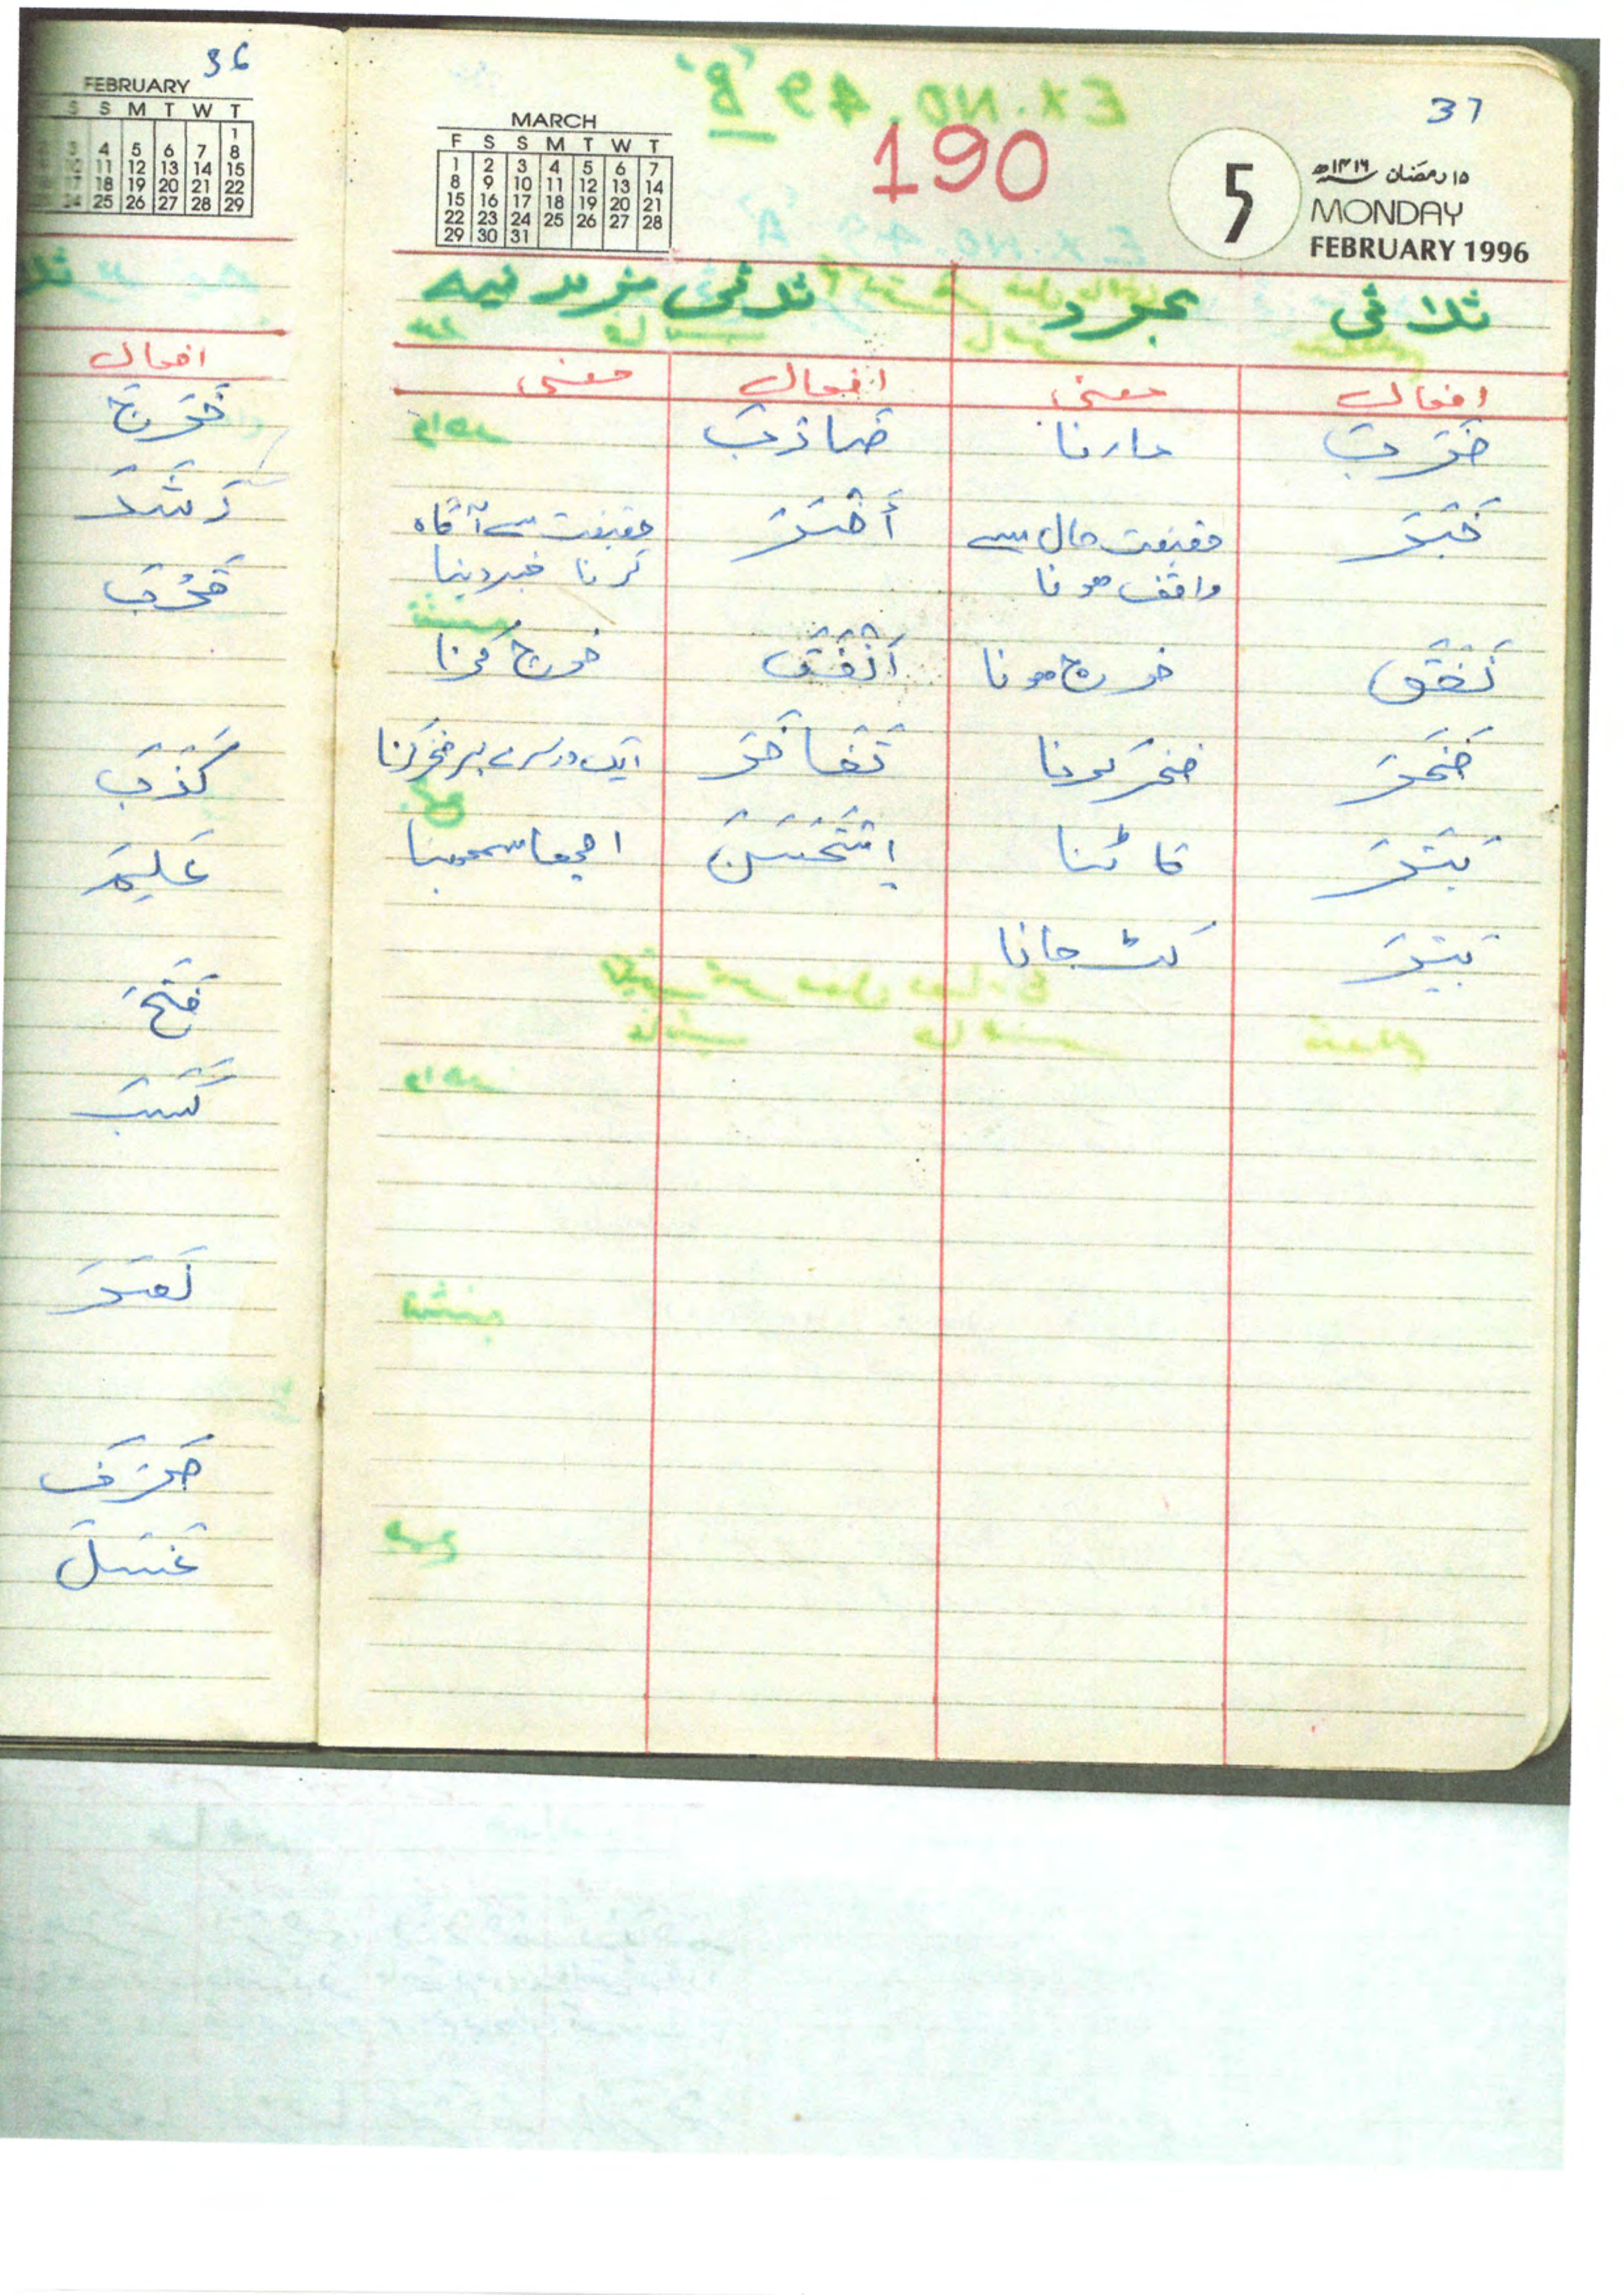 36
FEBRUARY
S S M T W T
1
3 4 5 6 7 8
10 11 12 13 14 15
17 18 19 20 21 22
24 25 26 27 28 29
افعال
رَشَدَ
قَرُبَ
كَذَبَ
عَلِمَ
فَتَحَ
كَسَبَ
صَرَفَ
غَسَلَ
EX. NO. 49 'B'
37
190
MARCH
F S S M T W T
1 2 3 4 5 6 7
8 9 10 11 12 13 14
15 16 17 18 19 20 21
22 23 24 25 26 27 28
29 30 31
5
۱۵ رمضان ۱۴۱۶ھ
MONDAY
FEBRUARY 1996
ثلاثی مجرد ثلاثی مزید فیہ
افعال معنی افعال معنی
ضَرَبَ مارنا ضَارَبَ
خَبَرَ حقیقت حال سے أَخْبَرَ حقیقت سے آگاہ
واقف ہونا کرنا خبر دینا
نَفَقَ خرچ ہونا أَنْفَقَ خرچ کرنا
فَخَرَ فخر کرنا تَفَاخَرَ ایک دوسرے پر فخر کرنا
بَتَرَ کاٹنا اِسْتَحْسَنَ اچھا سمجھنا
بَتِرَ کٹ جانا